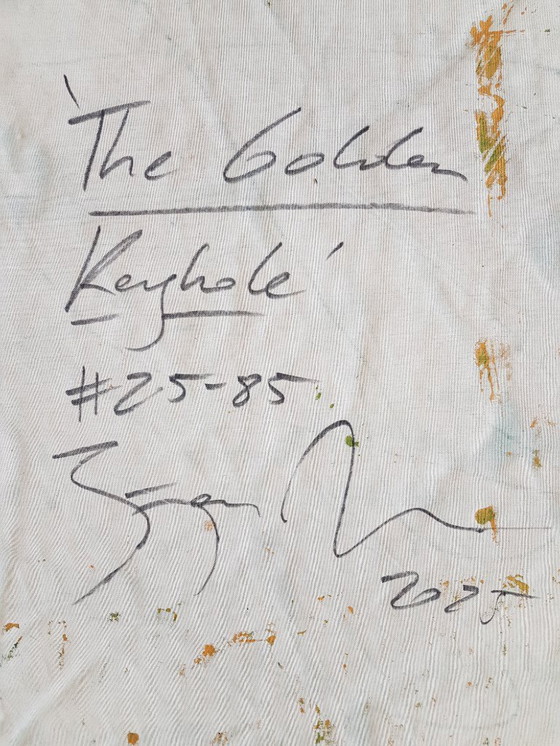 'The Golden
Keyhole'
#25-85
2025